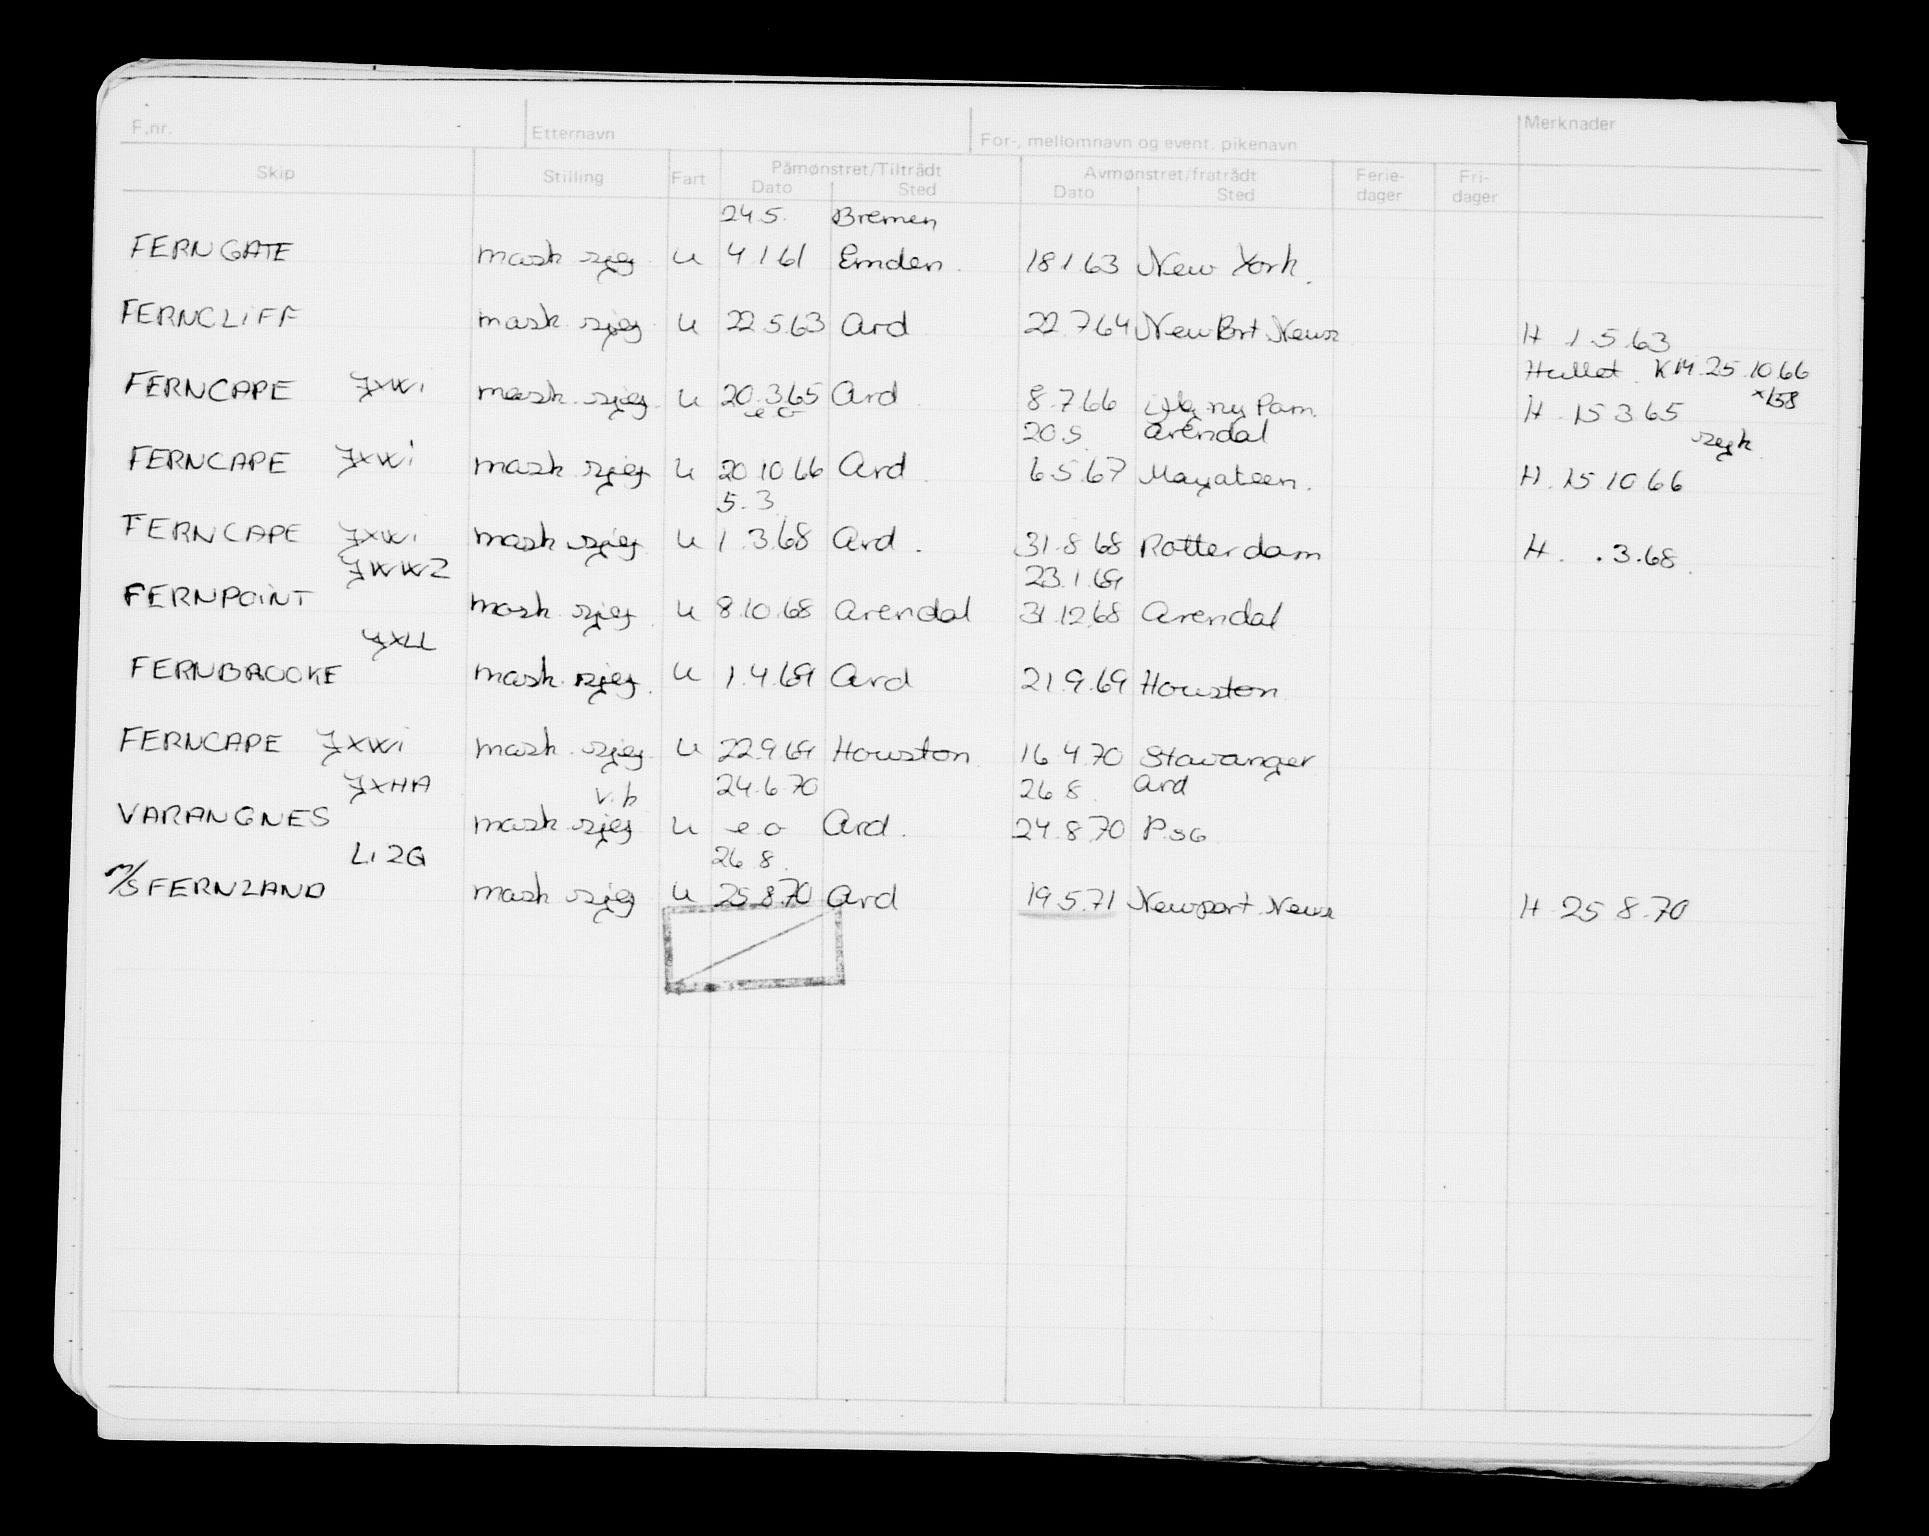 F.nr. Etternavn For-, mellomnavn og event. pikenavn Merknader
Skip Stilling Fart Påmønstret/Tiltrådt Avmønstret/fratrådt Ferie- Fri-
Dato Sted Dato Sted dager dager
24.5. Bremen
FERNGATE mask sjef U 4.1.61 Emden. 18.1.63 New York.
FERNCLIFF mask. sjef U 22.5.63 Ard 22.7.64 New Port News H 1.5.63
Hullet KM. 25.10.66
FERNCAPE JXWI mask. sjef. U 20.3.65 Ard 8.7.66 ny Pam. H. 15.3.65
e.o 20.5 Arendal
FERNCAPE JXWI mask sjef U 20.10.66 Ard. 6.5.67 H. 15.10.66
5.3
FERNCAPE JXWI mask sjef U 1.3.68 Ard. 31.8.68 Rotterdam H. .3.68.
JWWZ 23.1.69
FERNPOINT mask. sjef U 8.10.68 Arendal 31.12.68 Arendal
JXLL
FERNBROOKE mask. sjef. U 1.4.69 Ard 21.9.69 Houston
FERNCAPE JXWI mask. sjef U 22.9.69 Houston 16.4.70 Stavanger
JXHA v.k 24.6.70 26.8. Ard
VARANGNES mask. sjef U e.o Ard. 24.8.70 P.sa
LI2G 26.8.
M/S FERNLAND mask sjef U 25.8.70 Ard 19.5.71 Newport News H. 25.8.70